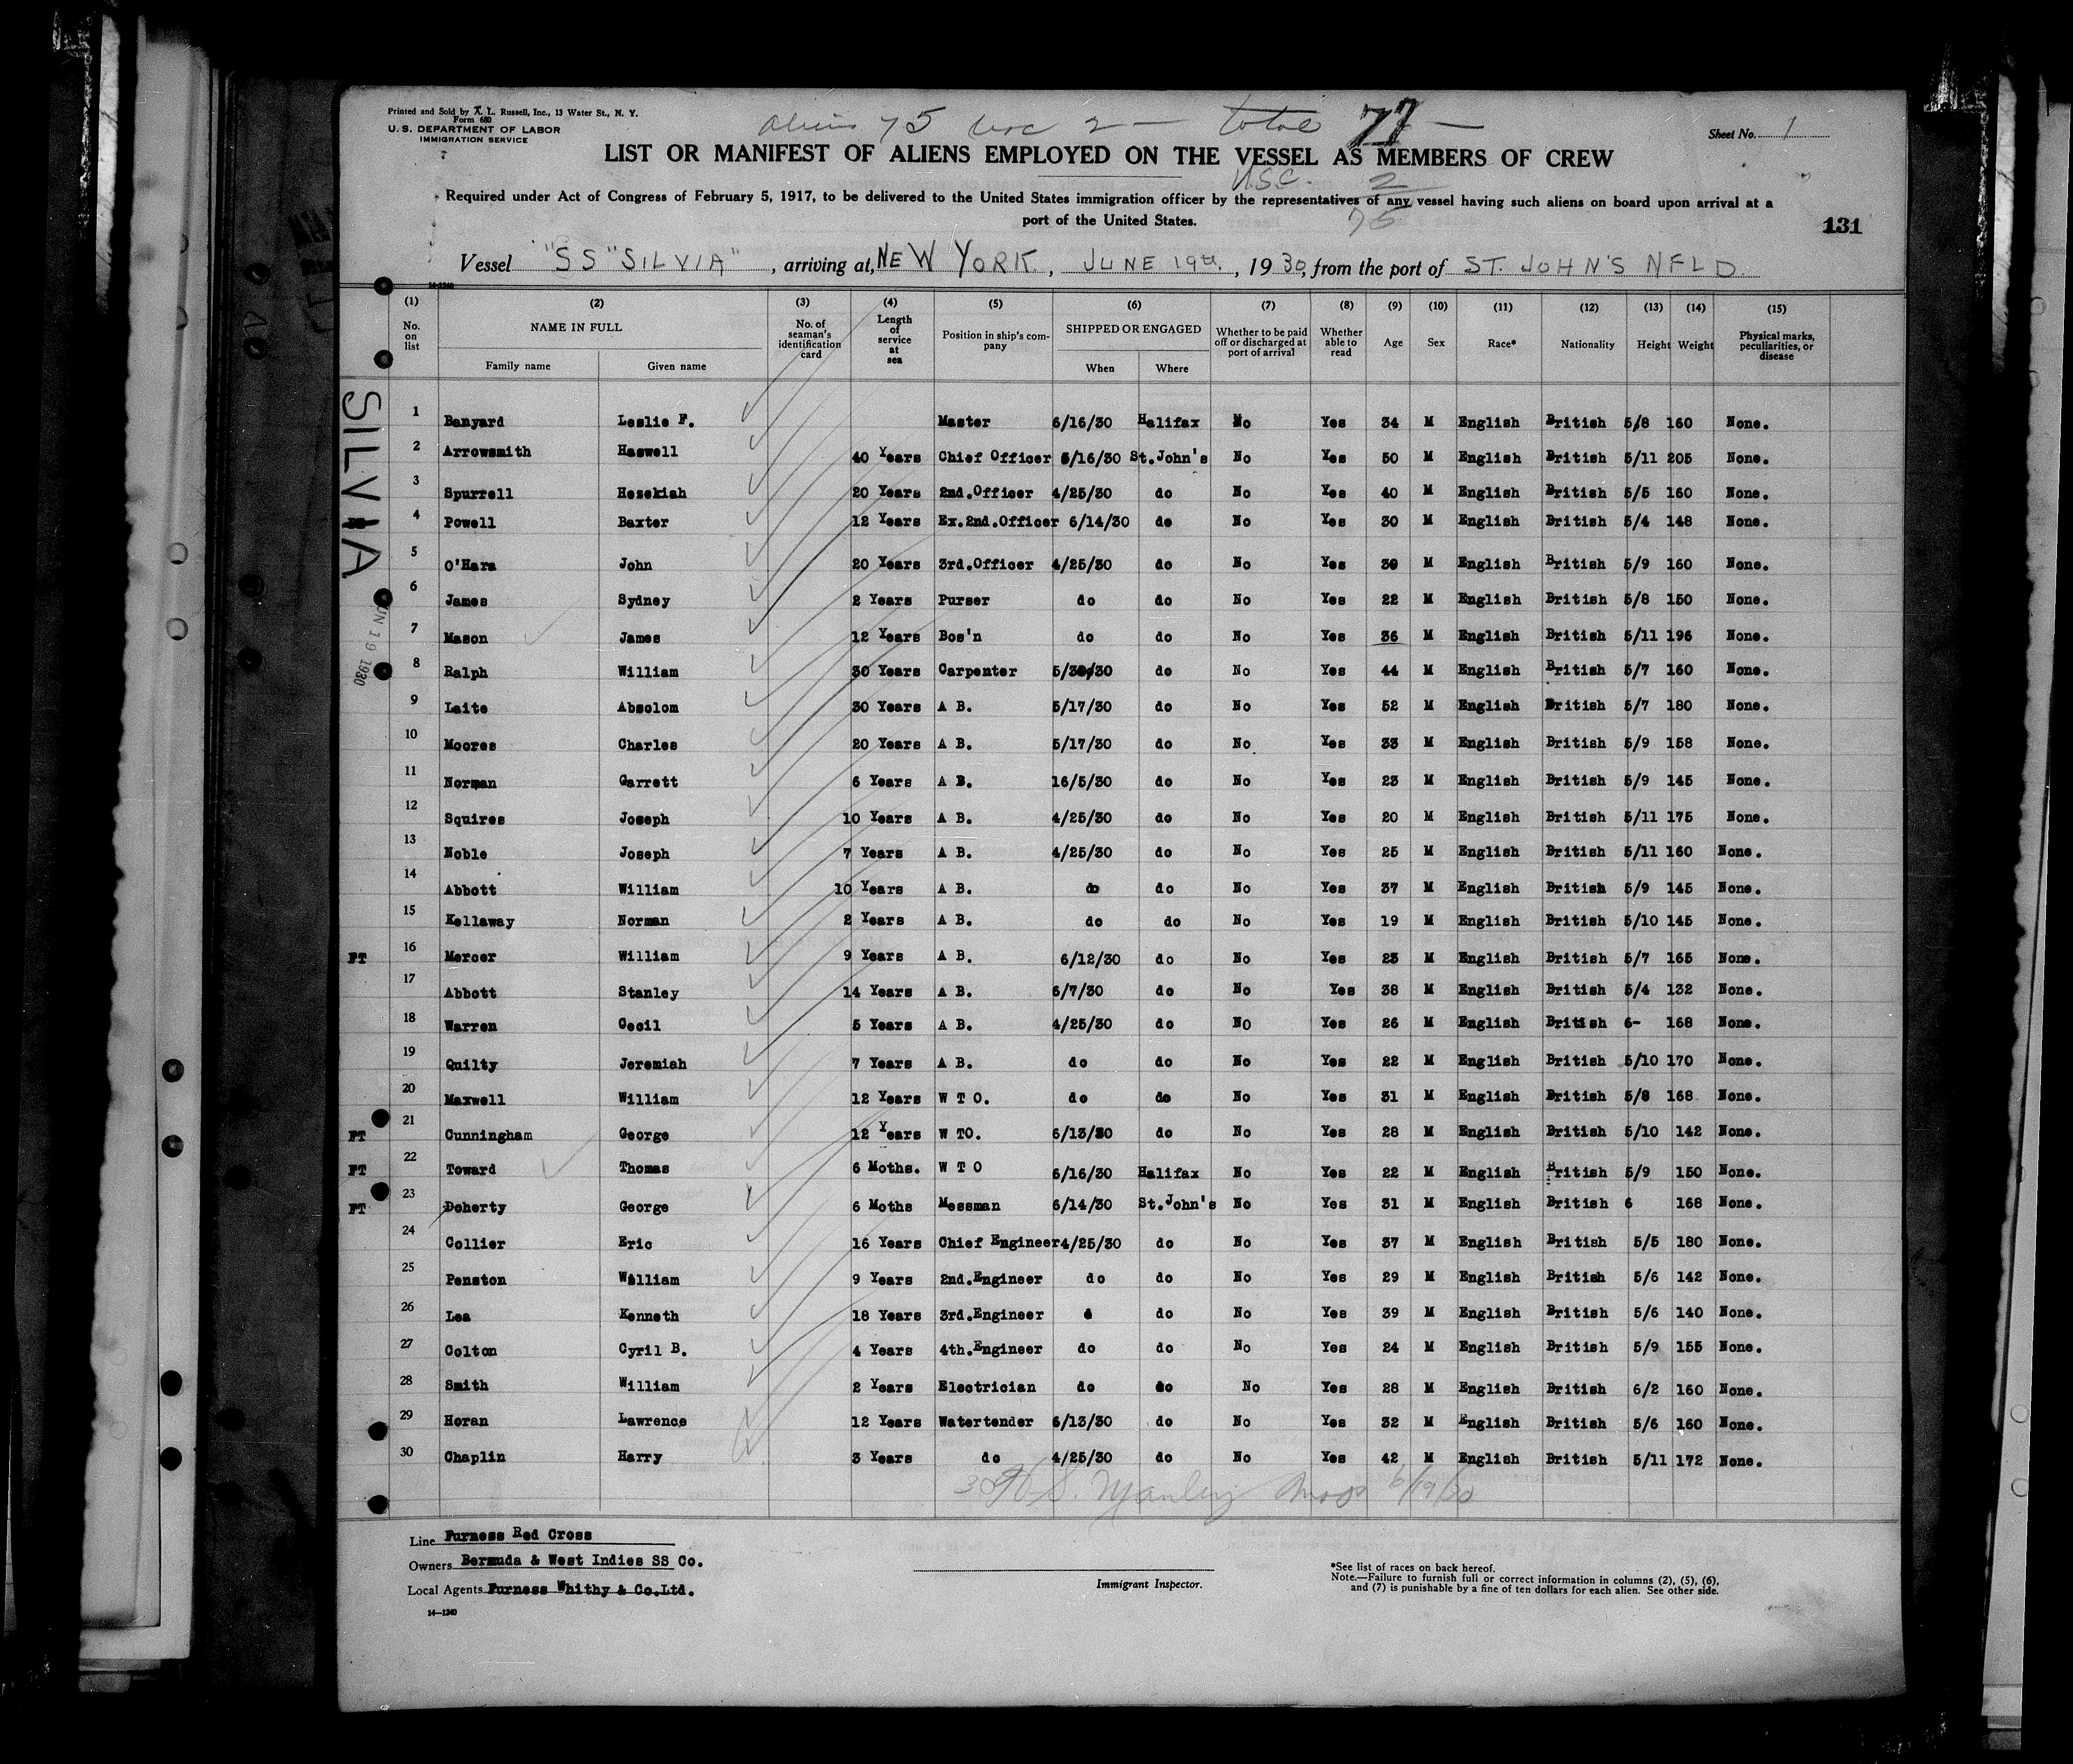 Printed and Sold by A. L. Russell, Inc., 13 Water St., N. Y.
Form 680
U. S. DEPARTMENT OF LABOR
IMMIGRATION SERVICE
aliens 75 usc 2 — total 77 —
Sheet No. 1
LIST OR MANIFEST OF ALIENS EMPLOYED ON THE VESSEL AS MEMBERS OF CREW
U.S.C. 2
75
Required under Act of Congress of February 5, 1917, to be delivered to the United States immigration officer by the representatives of any vessel having such aliens on board upon arrival at a
port of the United States.
131
Vessel "SS "SILVIA", arriving at, NEW YORK, JUNE 19th, 1930, from the port of ST. JOHN'S NFLD.
14-1240
(1) (2) (3) (4) (5) (6) (7) (8) (9) (10) (11) (12) (13) (14) (15)
No. on list NAME IN FULL Family name Given name No. of seaman's identification card Length of service at sea Position in ship's company SHIPPED OR ENGAGED When Where Whether to be paid off or discharged at port of arrival Whether able to read Age Sex Race* Nationality Height Weight Physical marks, peculiarities, or disease
SILVIA
JUN 19 1930
1 Banyard Leslie F. Master 6/16/30 Halifax No Yes 34 M English British 5/8 160 None.
2 Arrowsmith Haswell 40 Years Chief Officer 5/16/30 St.John's No Yes 50 M English British 5/11 205 None.
3 Spurrell Hesekiah 20 Years 2nd.Officer 4/25/30 do No Yes 40 M English British 5/5 160 None.
4 Powell Baxter 12 Years Ex.2nd.Officer 6/14/30 do No Yes 30 M English British 5/4 148 None.
5 O'Hara John 20 Years 3rd.Officer 4/25/30 do No Yes 39 M English British 5/9 160 None.
6 James Sydney 2 Years Purser do do No Yes 22 M English British 5/8 150 None.
7 Mason James 12 Years Bos'n do do No Yes 36 M English British 5/11 196 None.
8 Ralph William 30 Years Carpenter 5/30/30 do No Yes 44 M English British 5/7 160 None.
9 Laite Absolom 30 Years A B. 5/17/30 do No Yes 52 M English British 5/7 180 None.
10 Moores Charles 20 Years A B. 5/17/30 do No Yes 33 M English British 5/9 158 None.
11 Norman Garrett 6 Years A B. 16/5/30 do No Yes 23 M English British 5/9 145 None.
12 Squires Joseph 10 Years A B. 4/25/30 do No Yes 20 M English British 5/11 175 None.
13 Noble Joseph 7 Years A B. 4/25/30 do No Yes 25 M English British 5/11 160 None.
14 Abbott William 10 Years A B. do do No Yes 37 M English British 5/9 145 None.
15 Kellaway Norman 2 Years A B. do do No Yes 19 M English British 5/10 145 None.
PT 16 Mercer William 9 Years A B. 6/12/30 do No Yes 23 M English British 5/7 165 None.
17 Abbott Stanley 14 Years A B. 6/7/30 do No Yes 38 M English British 5/4 132 None.
18 Warren Cecil 5 Years A B. 4/25/30 do No Yes 26 M English British 6- 168 None.
19 Quilty Jeremiah 7 Years A B. do do No Yes 22 M English British 5/10 170 None.
20 Maxwell William 12 Years W T O. do do No Yes 31 M English British 5/8 168 None.
PT 21 Cunningham George 12 Years W TO. 6/13/30 do No Yes 28 M English British 5/10 142 None.
PT 22 Toward Thomas 6 Moths. W T O 6/16/30 Halifax No Yes 22 M English British 5/9 150 None.
PT 23 Doherty George 6 Moths Messman 6/14/30 St.John's No Yes 31 M English British 6 168 None.
24 Collier Eric 16 Years Chief Engineer 4/25/30 do No Yes 37 M English British 5/5 180 None.
25 Penston William 9 Years 2nd.Engineer do do No Yes 29 M English British 5/6 142 None.
26 Lea Kenneth 18 Years 3rd.Engineer do No Yes 39 M English British 5/6 140 None.
27 Colton Cyril B. 4 Years 4th.Engineer do do No Yes 24 M English British 5/9 155 None.
28 Smith William 2 Years Electrician do do No Yes 28 M English British 6/2 160 None.
29 Horan Lawrence 12 Years Watertender 6/13/30 do No Yes 32 M English British 5/6 160 None.
30 Chaplin Harry 3 Years do 4/25/30 do No Yes 42 M English British 5/11 172 None.
S. Manley 6/19/30
Line Furness Red Cross
Owners Bermuda & West Indies SS Co.
Local Agents Furness Whithy & Co.Ltd.
14—1240
Immigrant Inspector.
*See list of races on back hereof.
Note.—Failure to furnish full or correct information in columns (2), (5), (6),
and (7) is punishable by a fine of ten dollars for each alien. See other side.